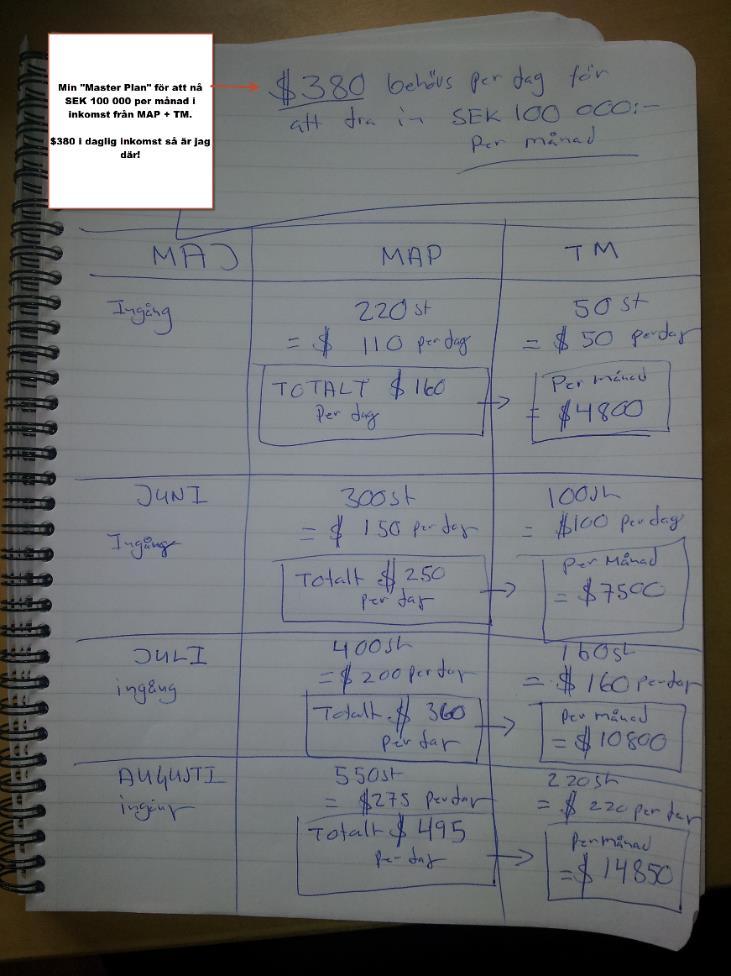 Min "Master Plan" för att nå
SEK 100 000 per månad i
inkomst från MAP + TM.
$380 i daglig inkomst så är jag
där!
$380 behövs per dag för
att dra in SEK 100 000:-
Per månad
MAJ MAP TM
Ingång 220st 50st
= $ 110 per dag = $50 per dag
TOTALT $160 Per månad
Per dag = $4800
JUNI 300st 100st
Ingång = $ 150 per dag = $100 per dag
Totalt $250 Per Månad
per dag = $7500
JULI 400st 160st
ingång = $200 per dag = $160 per dag
Totalt $ 360 Per månad
per dag = $10800
AUGUSTI 550st 220st
ingång = $275 per dag = $ 220 per dag
Totalt $ 495 Per månad
per dag = $14850